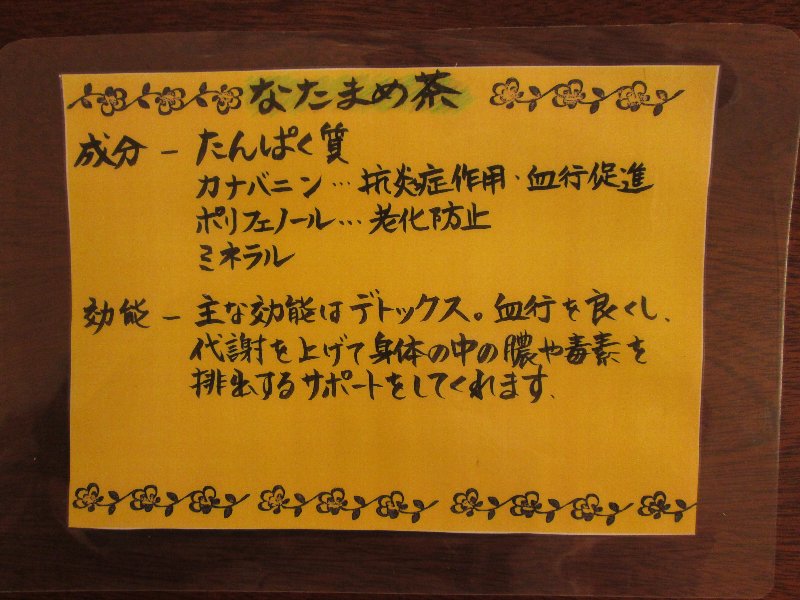 なたまめ茶
成分 － たんぱく質
カナバニン…抗炎症作用・血行促進
ポリフェノール…老化防止
ミネラル
効能 － 主な効能はデトックス。血行を良くし、
代謝を上げて身体の中の膿や毒素を
排出するサポートをしてくれます。